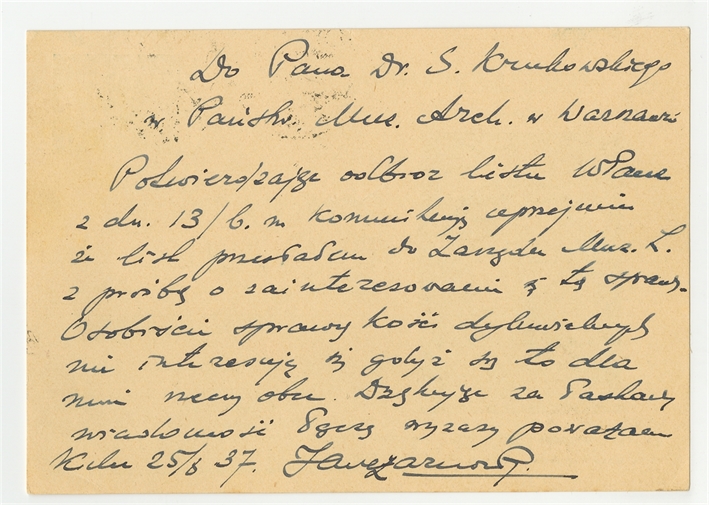 Do Pana Dr. S. Krukowskiego
w Państw. Muz. Arch. w Warszawie
Potwierdzając odbiór listu WPana
z dn. 13/6. m komunikuję uprzejmie
że list przesłałem do Zarządu Muz. Z.
z prośbą o zainteresowanie się tą sprawą.
Osobiście sprawy kości dyluwialnych
nie interesują się gdyż są to dla
mnie rzeczy obce. Dziękując za łaskawą
wiadomość łączę wyrazy poważania
25/6 37. Jan Czarnocki.